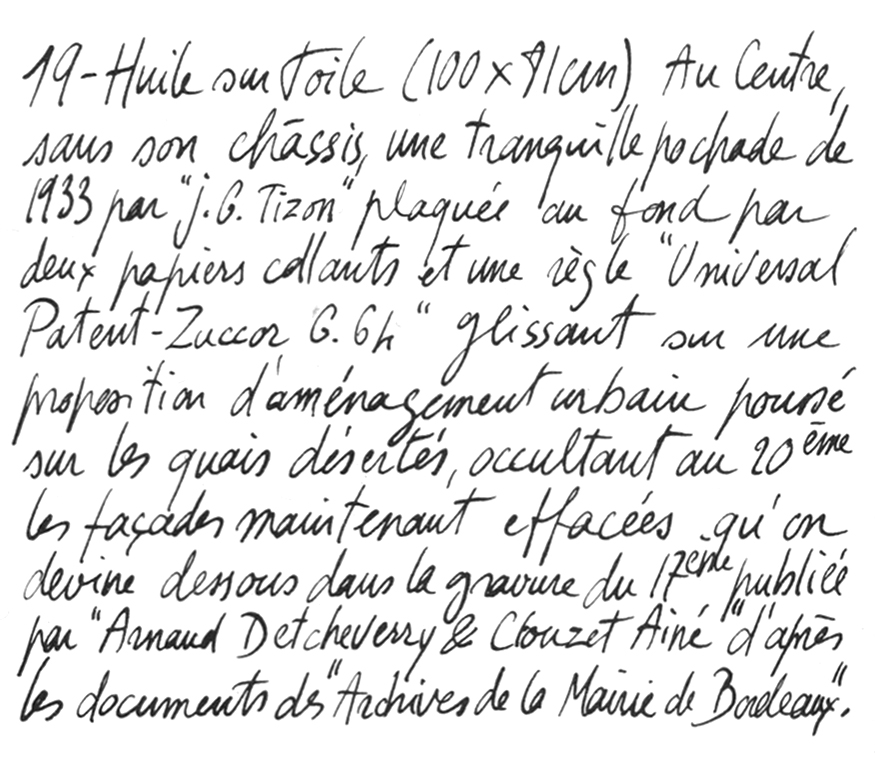 19-Huile sur Toile (100 x 81cm) Au Centre,
sans son châssis, une tranquille pochade de
1933 par "J.G. Tizon" plaquée au fond par
deux papiers collants et une règle "Universal
Patent-Zuccor G. G4" glissant sur une
proposition d'aménagement urbain poussé
sur les quais désertés, occultant au 20ème
les façades maintenant effacées qu'on
devine dessous dans la gravure du 17ème publiée
par "Arnaud Detcheverry & Clouzet Ainé" d'après
les documents des "Archives de la Mairie de Bordeaux".